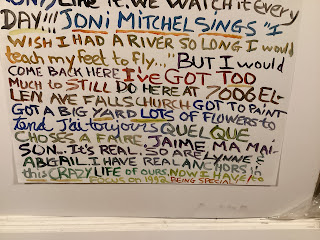 LIKE IT. WE WATCH IT EVERY
DAY!!! JONI MITCHEL SINGS "I
WISH I HAD A RIVER SO LONG I would
teach my feet to fly..." BUT I WOULD
COME BACK HERE I'VE GOT TOO
MUCH to STILL DO HERE AT 7006 EL-
LEN AVE FALLS CHURCH GOT TO PAINT
GOT A BIG YARD LOTS of FLOWERS to
tend J'ai toujours QUELQUE
CHOSES A FAIRE. J'AIME MA MAI-
SON... IT'S REAL. SO ARE LYNNE &
ABIGAIL. I HAVE REAL ANCHORS in
this CRAZY LIFE of OURS. NOW I HAVE to
FOCUS on 1992 BEING SPECIAL!